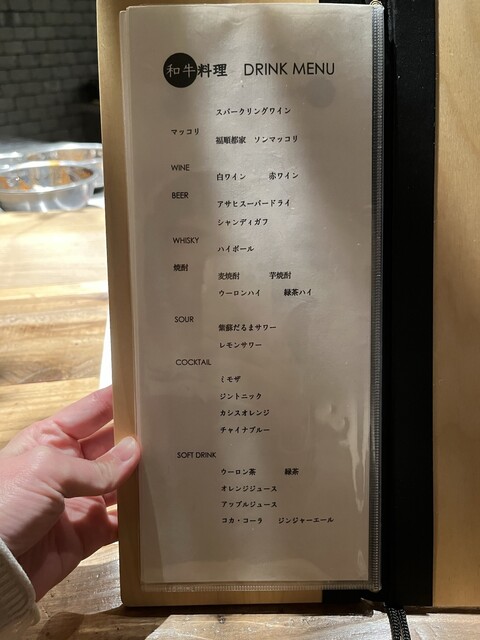 和牛料理 DRINK MENU
スパークリングワイン
マッコリ
福順都家 ソンマッコリ
WINE
白ワイン 赤ワイン
BEER
アサヒスーパードライ
シャンディガフ
WHISKY
ハイボール
焼酎
麦焼酎 芋焼酎
ウーロンハイ 緑茶ハイ
SOUR
紫蘇だるまサワー
レモンサワー
COCKTAIL
ミモザ
ジントニック
カシスオレンジ
チャイナブルー
SOFT DRINK
ウーロン茶 緑茶
オレンジジュース
アップルジュース
コカ・コーラ ジンジャーエール